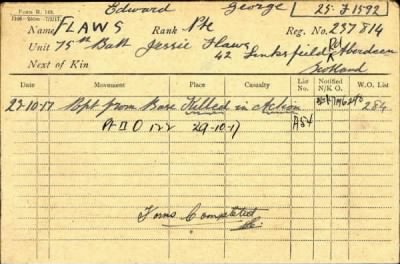 Form R. 149.
Edward George 25-F-1592
Name FLAWS Rank Pte Reg. No. 237814
Unit 75th Batt Jessie Flaws
42 Linksfield Rd Aberdeen
Next of Kin Scotland
Date Movement Place Casualty List No. Notified N/K O. W.O. List
22-10-17 Rept from Base Killed in Action 284
A II O 122 29-10-17 A54
Forms Completed